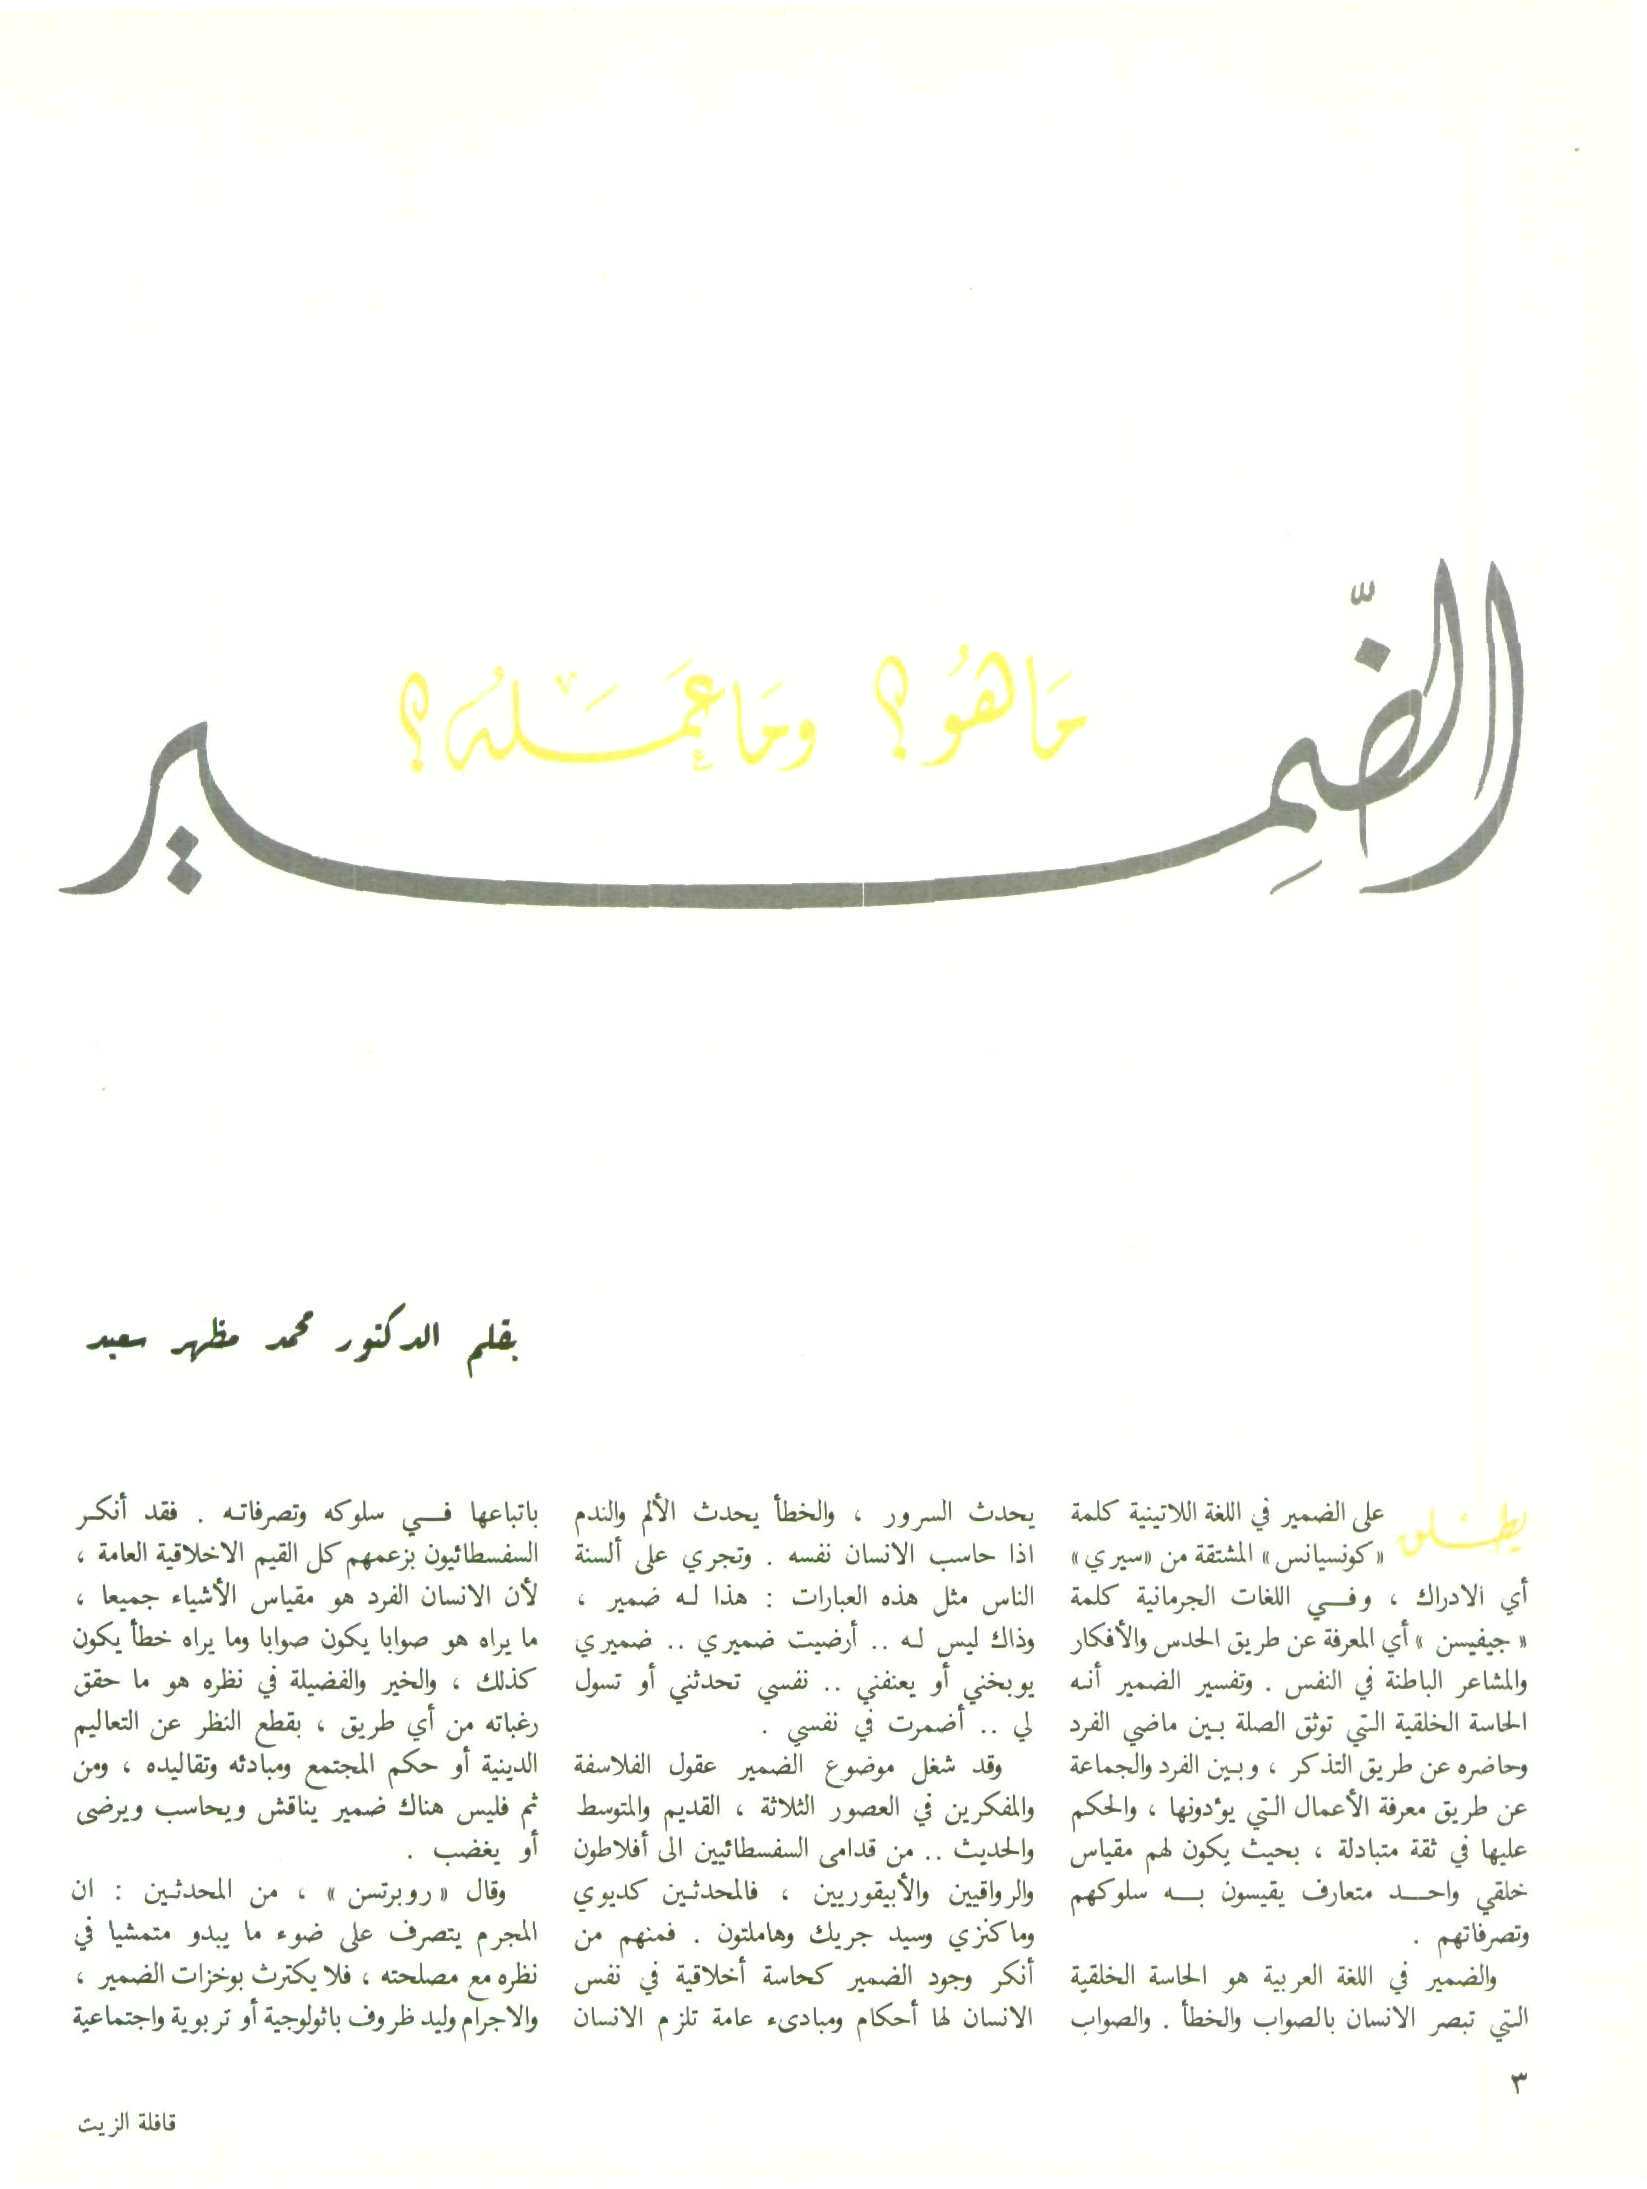 الضَّمِير
مَا هُوَ؟ وَمَا عَمَلُه؟
بقلم الدكتور محمد مظهر سعيد
يطلق على الضمير في اللغة اللاتينية كلمة
«كونسيانس» المشتقة من «سيري»
أي الادراك ، وفي اللغات الجرمانية كلمة
«جيفيسن» أي المعرفة عن طريق الحدس والأفكار
والمشاعر الباطنة في النفس . وتفسير الضمير أنه
الحاسة الخلقية التي توثق الصلة بين ماضي الفرد
وحاضره عن طريق التذكر ، وبين الفرد والجماعة
عن طريق معرفة الأعمال التي يؤدونها ، والحكم
عليها في ثقة متبادلة ، بحيث يكون لهم مقياس
خلقي واحد متعارف يقيسون به سلوكهم
وتصرفاتهم .
والضمير في اللغة العربية هو الحاسة الخلقية
التي تبصر الانسان بالصواب والخطأ . والصواب
يحدث السرور ، والخطأ يحدث الألم والندم
اذا حاسب الانسان نفسه . وتجري على ألسنة
الناس مثل هذه العبارات : هذا له ضمير ،
وذاك ليس له .. أرضيت ضميري .. ضميري
يوبخني أو يعنفني .. نفسي تحدثني أو تسول
لي .. أضمرت في نفسي .
وقد شغل موضوع الضمير عقول الفلاسفة
والمفكرين في العصور الثلاثة ، القديم والمتوسط
والحديث .. من قدامى السفسطائيين الى أفلاطون
والرواقيين والأبيقوريين ، فالمحدثين كديوي
وماكنزي وسيد جريك وهاملتون . فمنهم من
أنكر وجود الضمير كحاسة أخلاقية في نفس
الانسان لها أحكام ومبادىء عامة تلزم الانسان
باتباعها في سلوكه وتصرفاته . فقد أنكر
السفسطائيون بزعمهم كل القيم الاخلاقية العامة ،
لأن الانسان الفرد هو مقياس الأشياء جميعا ،
ما يراه هو صوابا يكون صوابا وما يراه خطأ يكون
كذلك ، والخير والفضيلة في نظره هو ما حقق
رغباته من أي طريق ، بقطع النظر عن التعاليم
الدينية أو حكم المجتمع ومبادئه وتقاليده ، ومن
ثم فليس هناك ضمير يناقش ويحاسب ويرضى
أو يغضب .
وقال «روبرتسن» ، من المحدثين : ان
المجرم يتصرف على ضوء ما يبدو متمشيا في
نظره مع مصلحته ، فلا يكترث بوخزات الضمير ،
والاجرام وليد ظروف باثولوجية أو تربوية واجتماعية
٣
قافلة الزيت